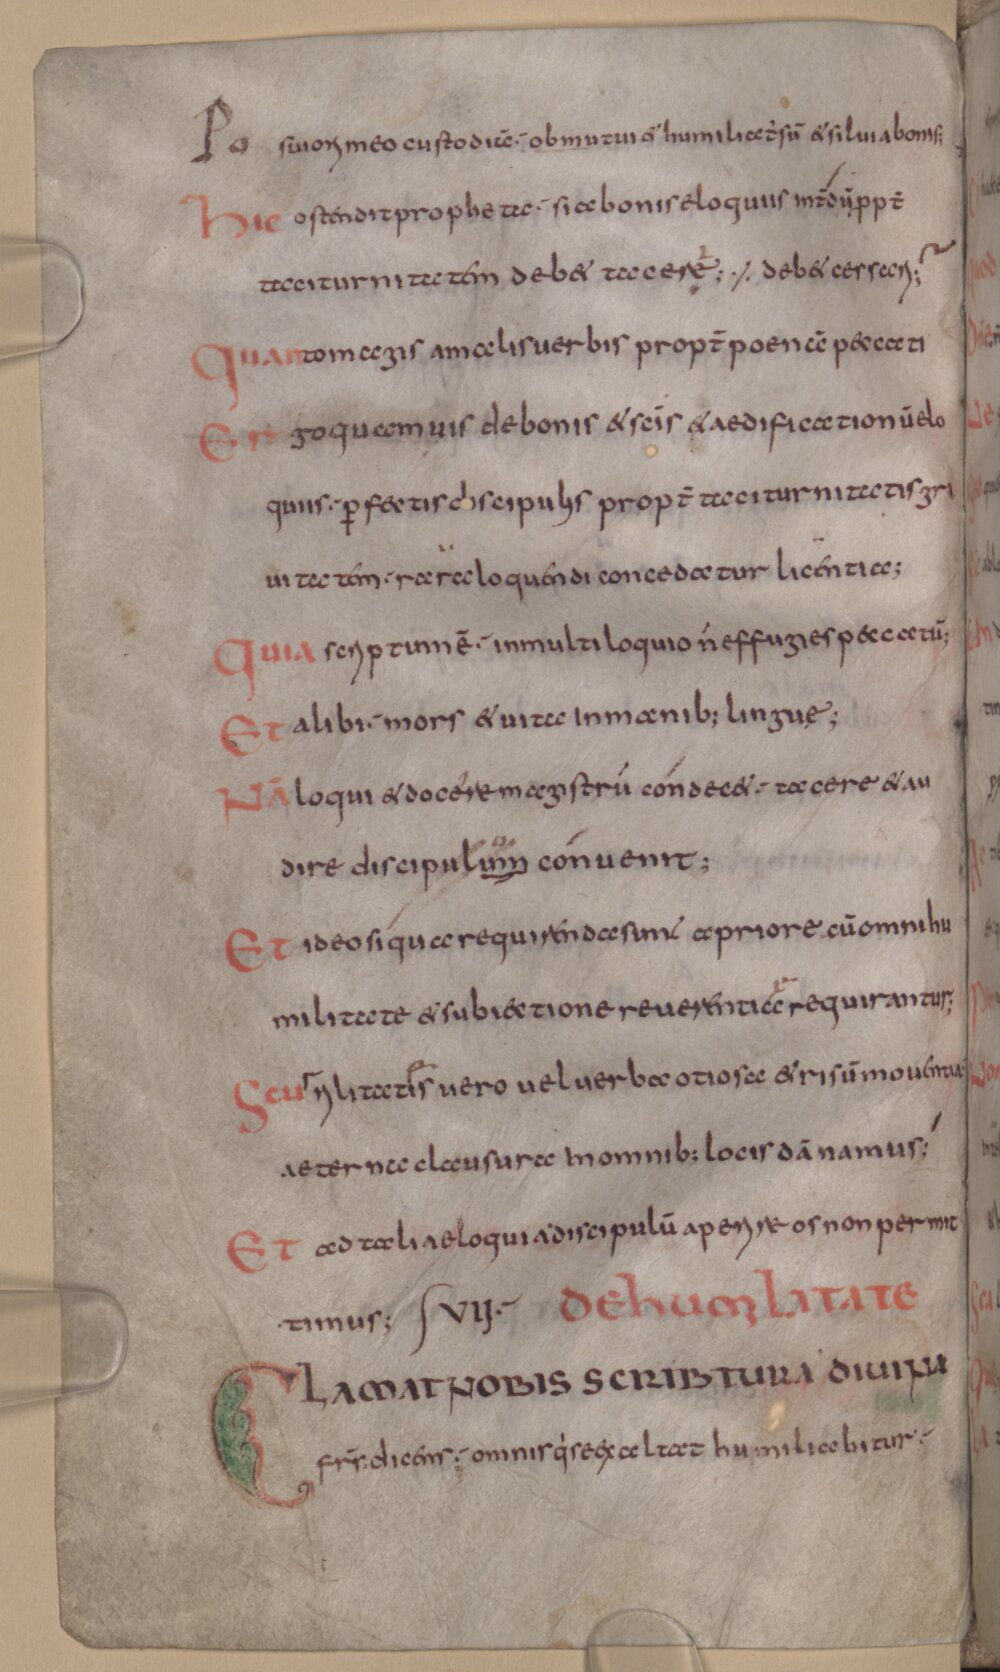 Posui ori meo custodiā· obmutui & humiliat᷒ sū & silui a bonis;
Hic ostendit propheta· si a bonis eloquiis int̄dū ppt̄
taciturnitatem deb& tacere; ·/· deb& cessari;
Quantomagis a malis verbis propt̄ poenā peccati
Ergo quamuis de bonis & scīs & aedificationū elo
quiis· perfectis discipulis propt̄ taciturnitatis gra
uitatem· rara loquendi concedatur licentia;
Quia scriptum ē· in multiloquio n̄ effugies peccatū;
Et alibi· mors & uita In manib; linguę;
Nā loqui & docere magistrū condec&· tacere & au
dire discipulum conuenit;
Et ideo si qua requirenda sunt a priore cū omni hu
militate & subiectione reuerentiae requirantur;
Scurrilitatis vero vel verba otiosa & risū mouentia
aeterna clausura In omnib; locis dānamus;
Et ad talia eloquia discipulū aperire os non permit
timus; VII· de humilitate
Clamat nobis scribtura diuina
frs̄ dicens· omnis q̇ se exaltat humiliabitur·